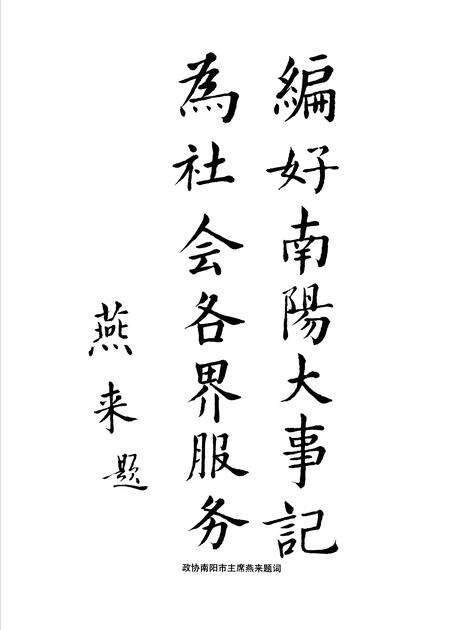 編好南陽大事記
為社会各界服务
燕来题
政协南阳市主席燕来题词